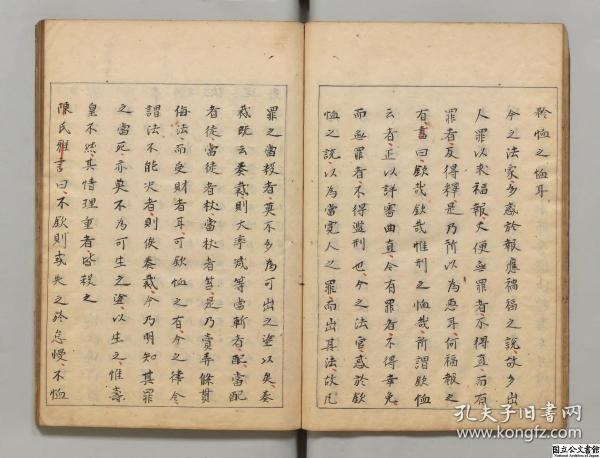 矜恤之恤耳
今之法家多惑於報應禍福之說故多出
人罪以求福報夫使無罪者不得直而有
罪者反得釋是乃所以為惡耳何福報之
有書曰欽哉欽哉惟刑之恤哉所謂欽恤
云者正以詳審曲直令有罪者不得幸免
而無罪者不得濫刑也今之法官惑於欽
恤之說以為當寬人之罪而出其法故凡
罪之當殺者莫不多為可出之塗以俟奏
裁既云奏裁則大率減等當斬者配當配
者徒當徒者杖當杖者笞是乃賣弄條貫
侮法而受財者耳何欽恤之有今之律令
謂法不能決者則俟奏裁今乃明知其罪
之當死亦莫不為可生之塗以生之惟壽
皇不然其情理重者皆殺之
陳氏雅言曰不欽則或失之於怠慢不恤
孔夫子旧书网
www.kongfz.com
国立公文書館
National Archives of Japan